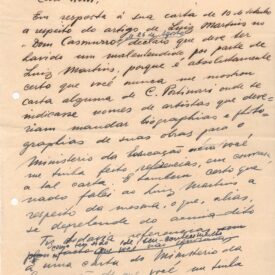 Em resposta à sua carta de 13 de
a respeito do artigo de Luiz Martins no
"Dom Casmurro" declaro que deve ter
havido um malentendido por parte de
Luiz Martins, porque é absolutamente
certo que você nunca me mostrou
carta alguma de C. Portinari onde
indicasse nomes de artistas que de-
veriam mandar biographias e photo-
graphias de suas obras para o
Ministerio da Educação nem você
me tinha feito referencias, em conversa
a tal carta. É tambem certo que
nada falei ao Luiz Martins a
respeito da mesma, o que, aliás,
se deprehende do
referencias
a uma carta do Ministerio da
que você me tinha